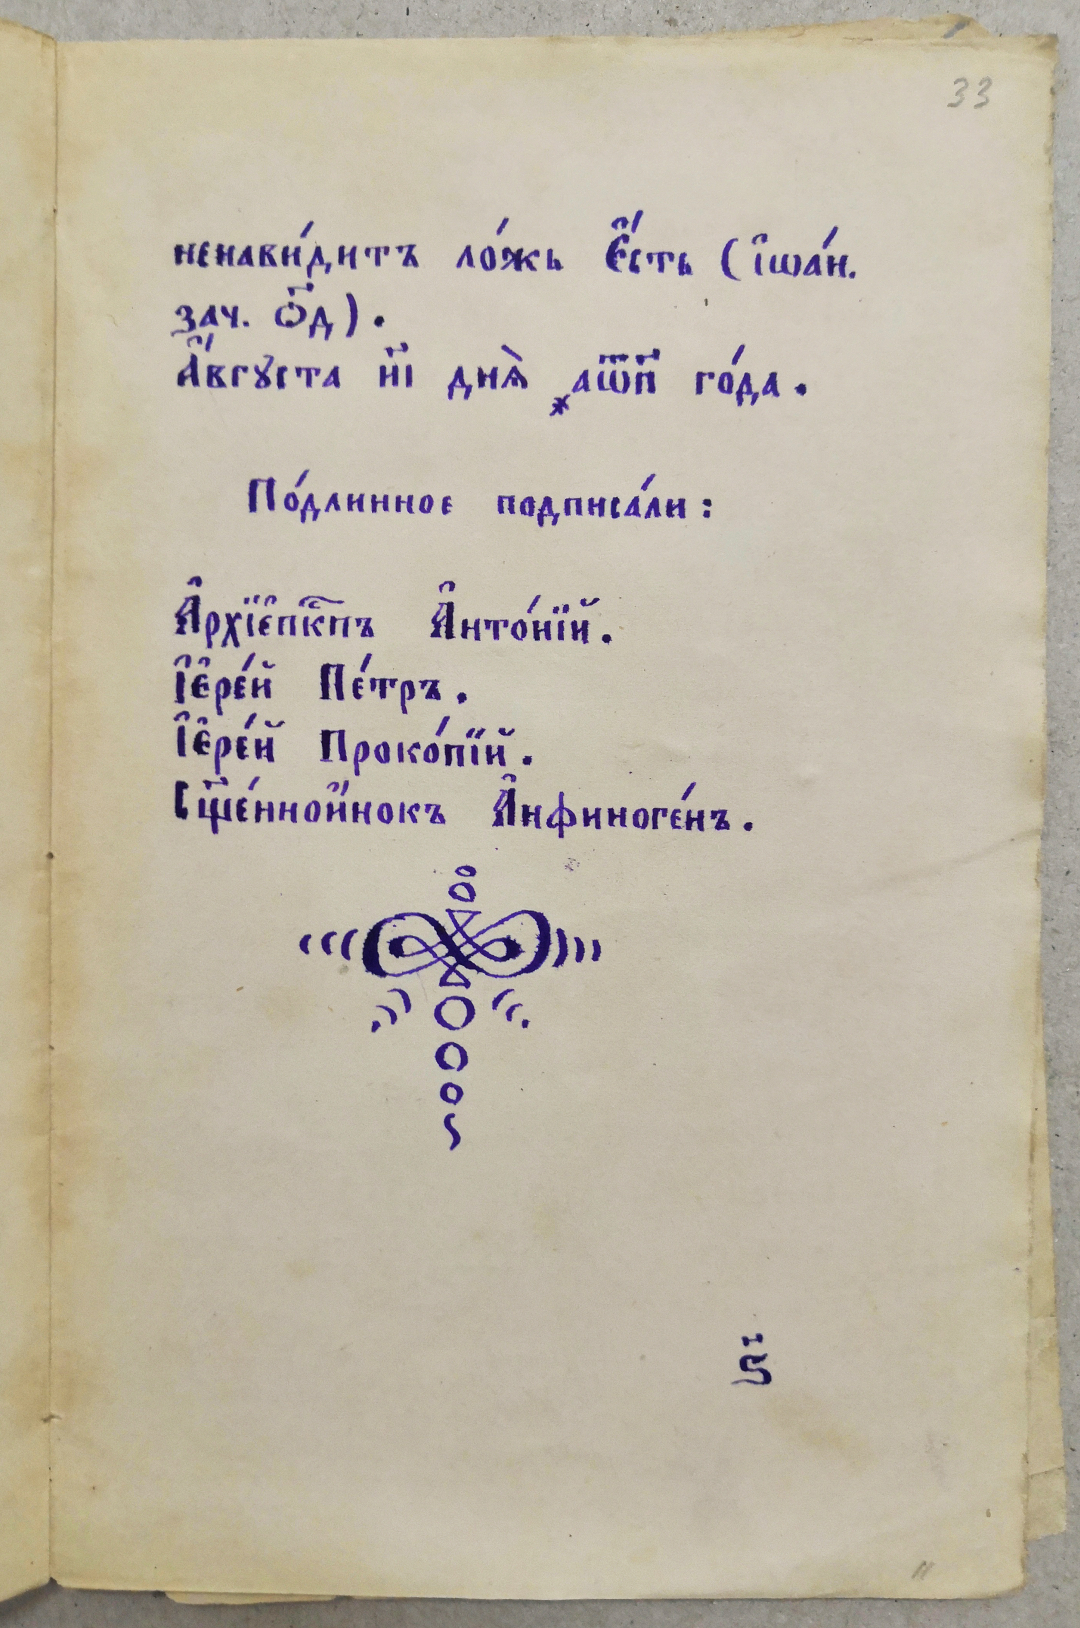 33
ненави́дитъ ло́жь є҆́сть (і҆ѡа́н.
зач. ѻ҃д).
А҆́вгꙋста и҃і днѧ̀ ҂аѿ҃п го́да.
По́длинное подписа́ли:
А҆рхїє҆пк҃пъ А҆нто́нїй.
І҆є҆ре́й Пе́тръ.
І҆є҆ре́й Проко́пїй.
Сщ҃е́ннои́нокъ А҆нфиноге́нъ.
ѕ҃